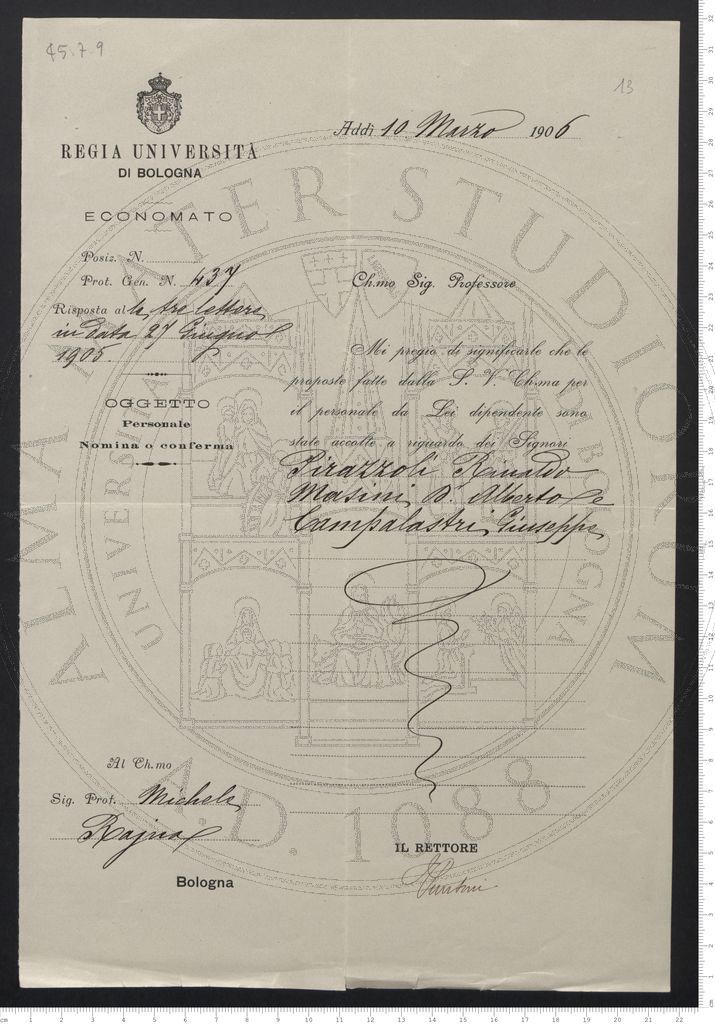 45.7.9
13
Addì 10 Marzo 1906
REGIA UNIVERSITÀ
DI BOLOGNA
ECONOMATO
Posiz. N.
Prot. Gen. N. 437
Risposta alle tre lettere
in data 27 Giugno
1905.
OGGETTO
Personale
Nomina o conferma
Ch.mo Sig. Professore
Mi pregio di significarle che le
proposte fatte dalla S. V. Ch.ma per
il personale da Lei dipendente sono
state accolte a riguardo dei Signori
Pirazzoli Rinaldo
Masini D. Alberto e
Campalastri Giuseppe
Al Ch.mo
Sig. Prof. Michele
Rajna
Bologna
IL RETTORE
ALMA MATER STUDIORUM
A.D. 1088